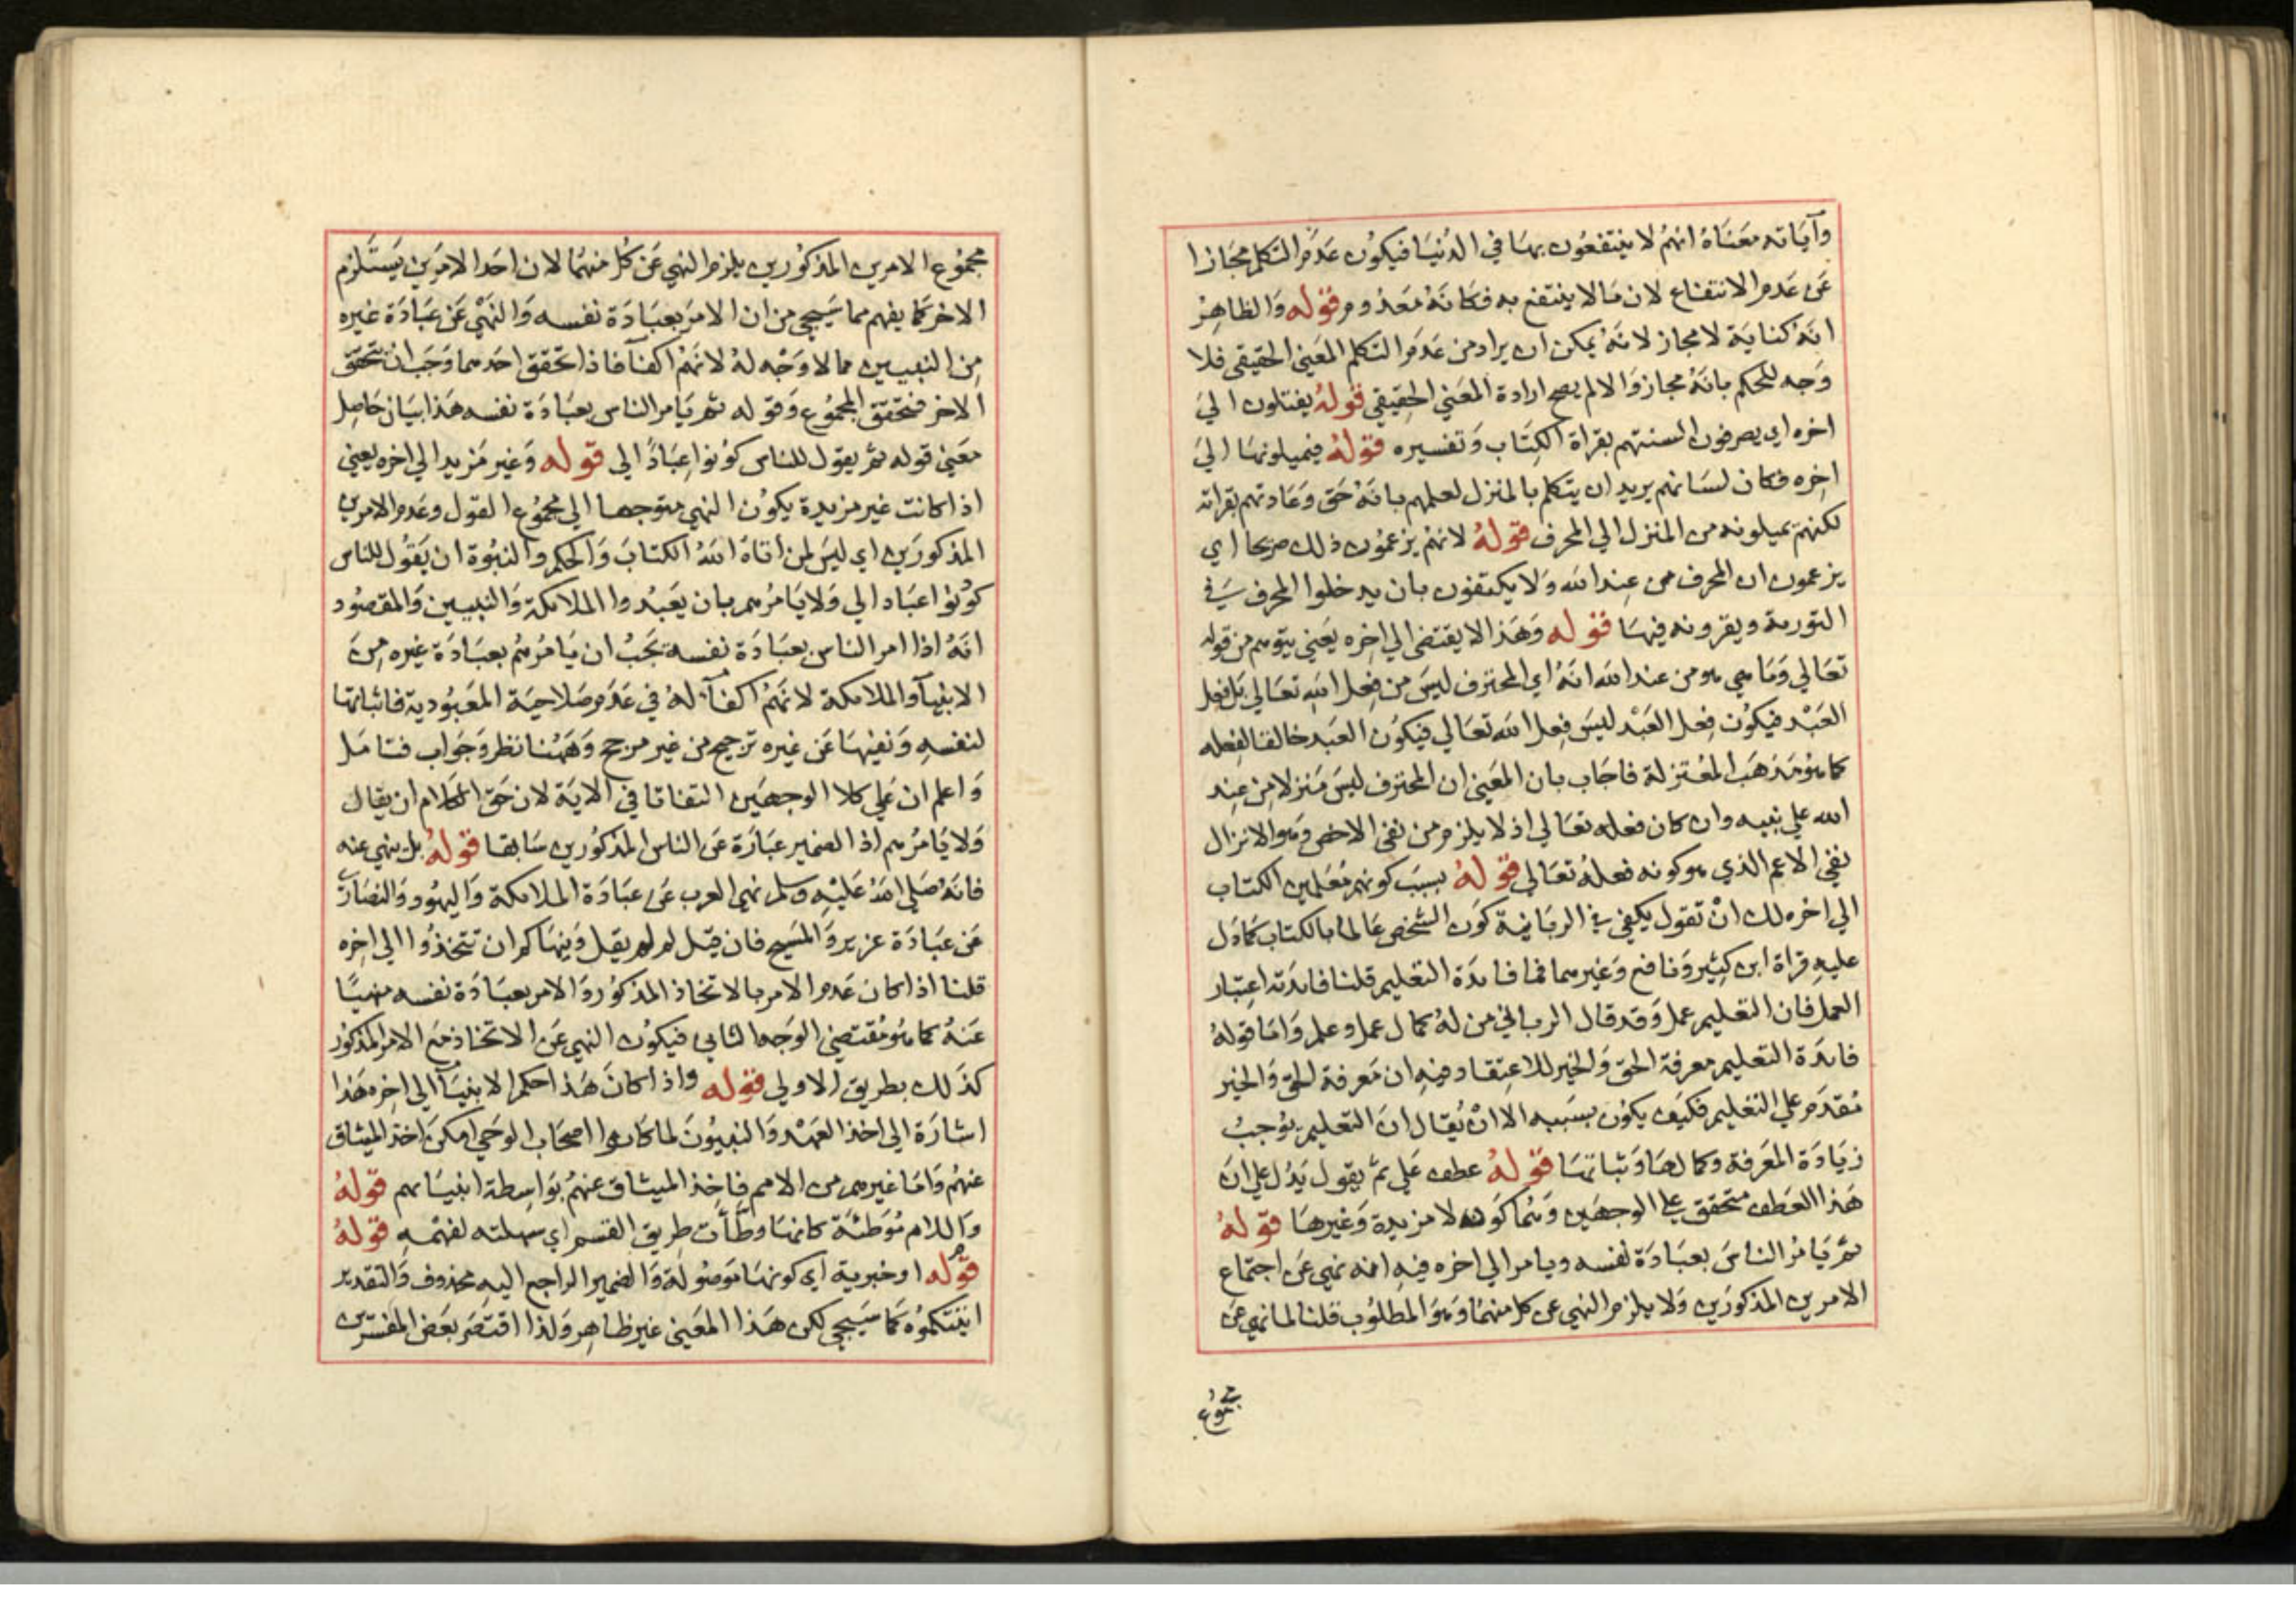 وآياته معناه انهم لا ينتفعون بها في الدنيا فيكون عدم التكلم مجازا
عن عدم الانتفاع لان مالا ينتفع به فكانه معدوم قوله والظاهر
انه كناية لا مجاز لانه يمكن ان يراد من عدم التكلم المعني الحقيقي فلا
وجه للحكم بانه مجاز والا لم يصح ارادة المعني الحقيقي قوله يفتلون الي
اخره اي يصرفون السنتهم بقراة الكتاب وتفسيره قوله فيميلونها الي
اخره فكان لسانهم يريد ان يتكلم بالمنزل لعلمهم بانه حق وعادتهم بقراته
لكنهم يميلونه من المنزل الي المحرف قوله لانهم يزعمون ذلك صريحا اي
يزعمون ان المحرف من عند الله ولا يكتفون بان يدخلوا المحرف في
التورية ويقرونه فيها قوله وهذا لا يقتضي الي اخره يعني يتوهم من قوله
تعالي وما هي هو من عند الله انه اي المحترف ليس من فعل الله تعالي بل فعل
العبد فيكون فعل العبد ليس فعل الله تعالي فيكون العبد خالقا لفعله
كما هو مذهب المعتزلة فاجاب بان المعني ان المحترف ليس منزلا من عند
الله علي نبيه وان كان فعله تعالي اذ لا يلزم من نفي الاخص وهو الانزال
نفي الاعم الذي هو كونه فعله تعالي قوله بسبب كونهم معلمين الكتاب
الي اخره لك ان تقول يكفي في الربانية كون الشخص عالما بالكتاب كما دل
عليه قراة ابن كثير ونافع وغيرهما فما فايدة التعليم قلنا فايدته اعتبار
العمل فان التعليم عمل وقد قال الرباني من له كمال عمل وعلم واما قوله
فايدة التعليم معرفة الحق والخير للاعتقاد فيه ان معرفة الحق والخير
مقدم علي التعليم فكيف يكون بسببه الا ان يقال ان التعليم يوجب
زيادة المعرفة وكمالها وثباتها قوله عطف علي ثم يقول يدل علي ان
هذا العطف متحقق علي الوجهين وهما كون لا مزيدة وغيرها قوله
ثم يامر الناس بعبادة نفسه ويامر الي اخره فيه انه نهي عن اجتماع
الامرين المذكورين ولا يلزم النهي عن كل منهما وهو المطلوب قلنا لما نهي عن
مجموع
مجموع الامرين المذكورين يلزم النهي عن كل منهما لان احد الامرين يستلزم
الاخر كما يفهم مما سيجي من ان الامر بعبادة نفسه والنهي عن عبادة غيره
من النبيين مما لا وجه له لانهم اكفآ فاذا تحقق احدهما وجب ان تحقق
الاخر فتحقق المجموع وقوله ثم يامر الناس بعبادة نفسه هذا بيان حاصل
معني قوله ثم يقول للناس كونوا عبادا لي قوله وغير مزيد الي اخره يعني
اذا كانت غير مزيدة يكون النهي متوجها الي مجموع القول وعدم الامرين
المذكورين اي ليس لمن اتاه الله الكتاب والحكم والنبوة ان يقول للناس
كونوا عبادا لي ولا يامرهم بان يعبدوا الملائكة والنبيين والمقصود
انه اذا امر الناس بعبادة نفسه يجب ان يامرهم بعبادة غيره من
الانبيآ والملائكة لانهم اكفآ له في عدم صلاحية المعبودية فاثباتها
لنفسه ونفيها عن غيره ترجيح من غير مرجح وههنا نظر وجواب فتامل
واعلم ان علي كلا الوجهين التفاتا في الاية لان حق الكلام ان يقال
ولا يامرهم اذ الضمير عبارة عن الناس المذكورين سابقا قوله بل ينهي عنه
فانه صلي الله عليه وسلم نهي العرب عن عبادة الملائكة واليهود والنصاري
عن عبادة عزير والمسيح فان قيل لم لم يقل وينهاكم ان تتخذوا الي اخره
قلنا اذا كان عدم الامر بالاتخاذ المذكور والامر بعبادة نفسه منهيا
عنه كما هو مقتضي الوجه الثاني فيكون النهي عن الاتخاذ مع الامر المذكور
كذلك بطريق الاولي قوله واذا كان هذا حكم الانبيآ الي اخره هذا
اشارة الي اخذ العهد والنبيون لما كانوا اصحاب الوحي امكن اخذ الميثاق
عنهم واما غيرهم من الامم فاخذ الميثاق عنهم بواسطة انبياهم قوله
واللام موطئة كانها وطأت طريق القسم اي سهلته لفهمه قوله
قوله او خبرية اي كونها موصولة والضمير الراجع اليه محذوف والتقدير
اتيتكموه كما سيجي لكن هذا المعني غير ظاهر ولذا اقتصر بعض المفسرين